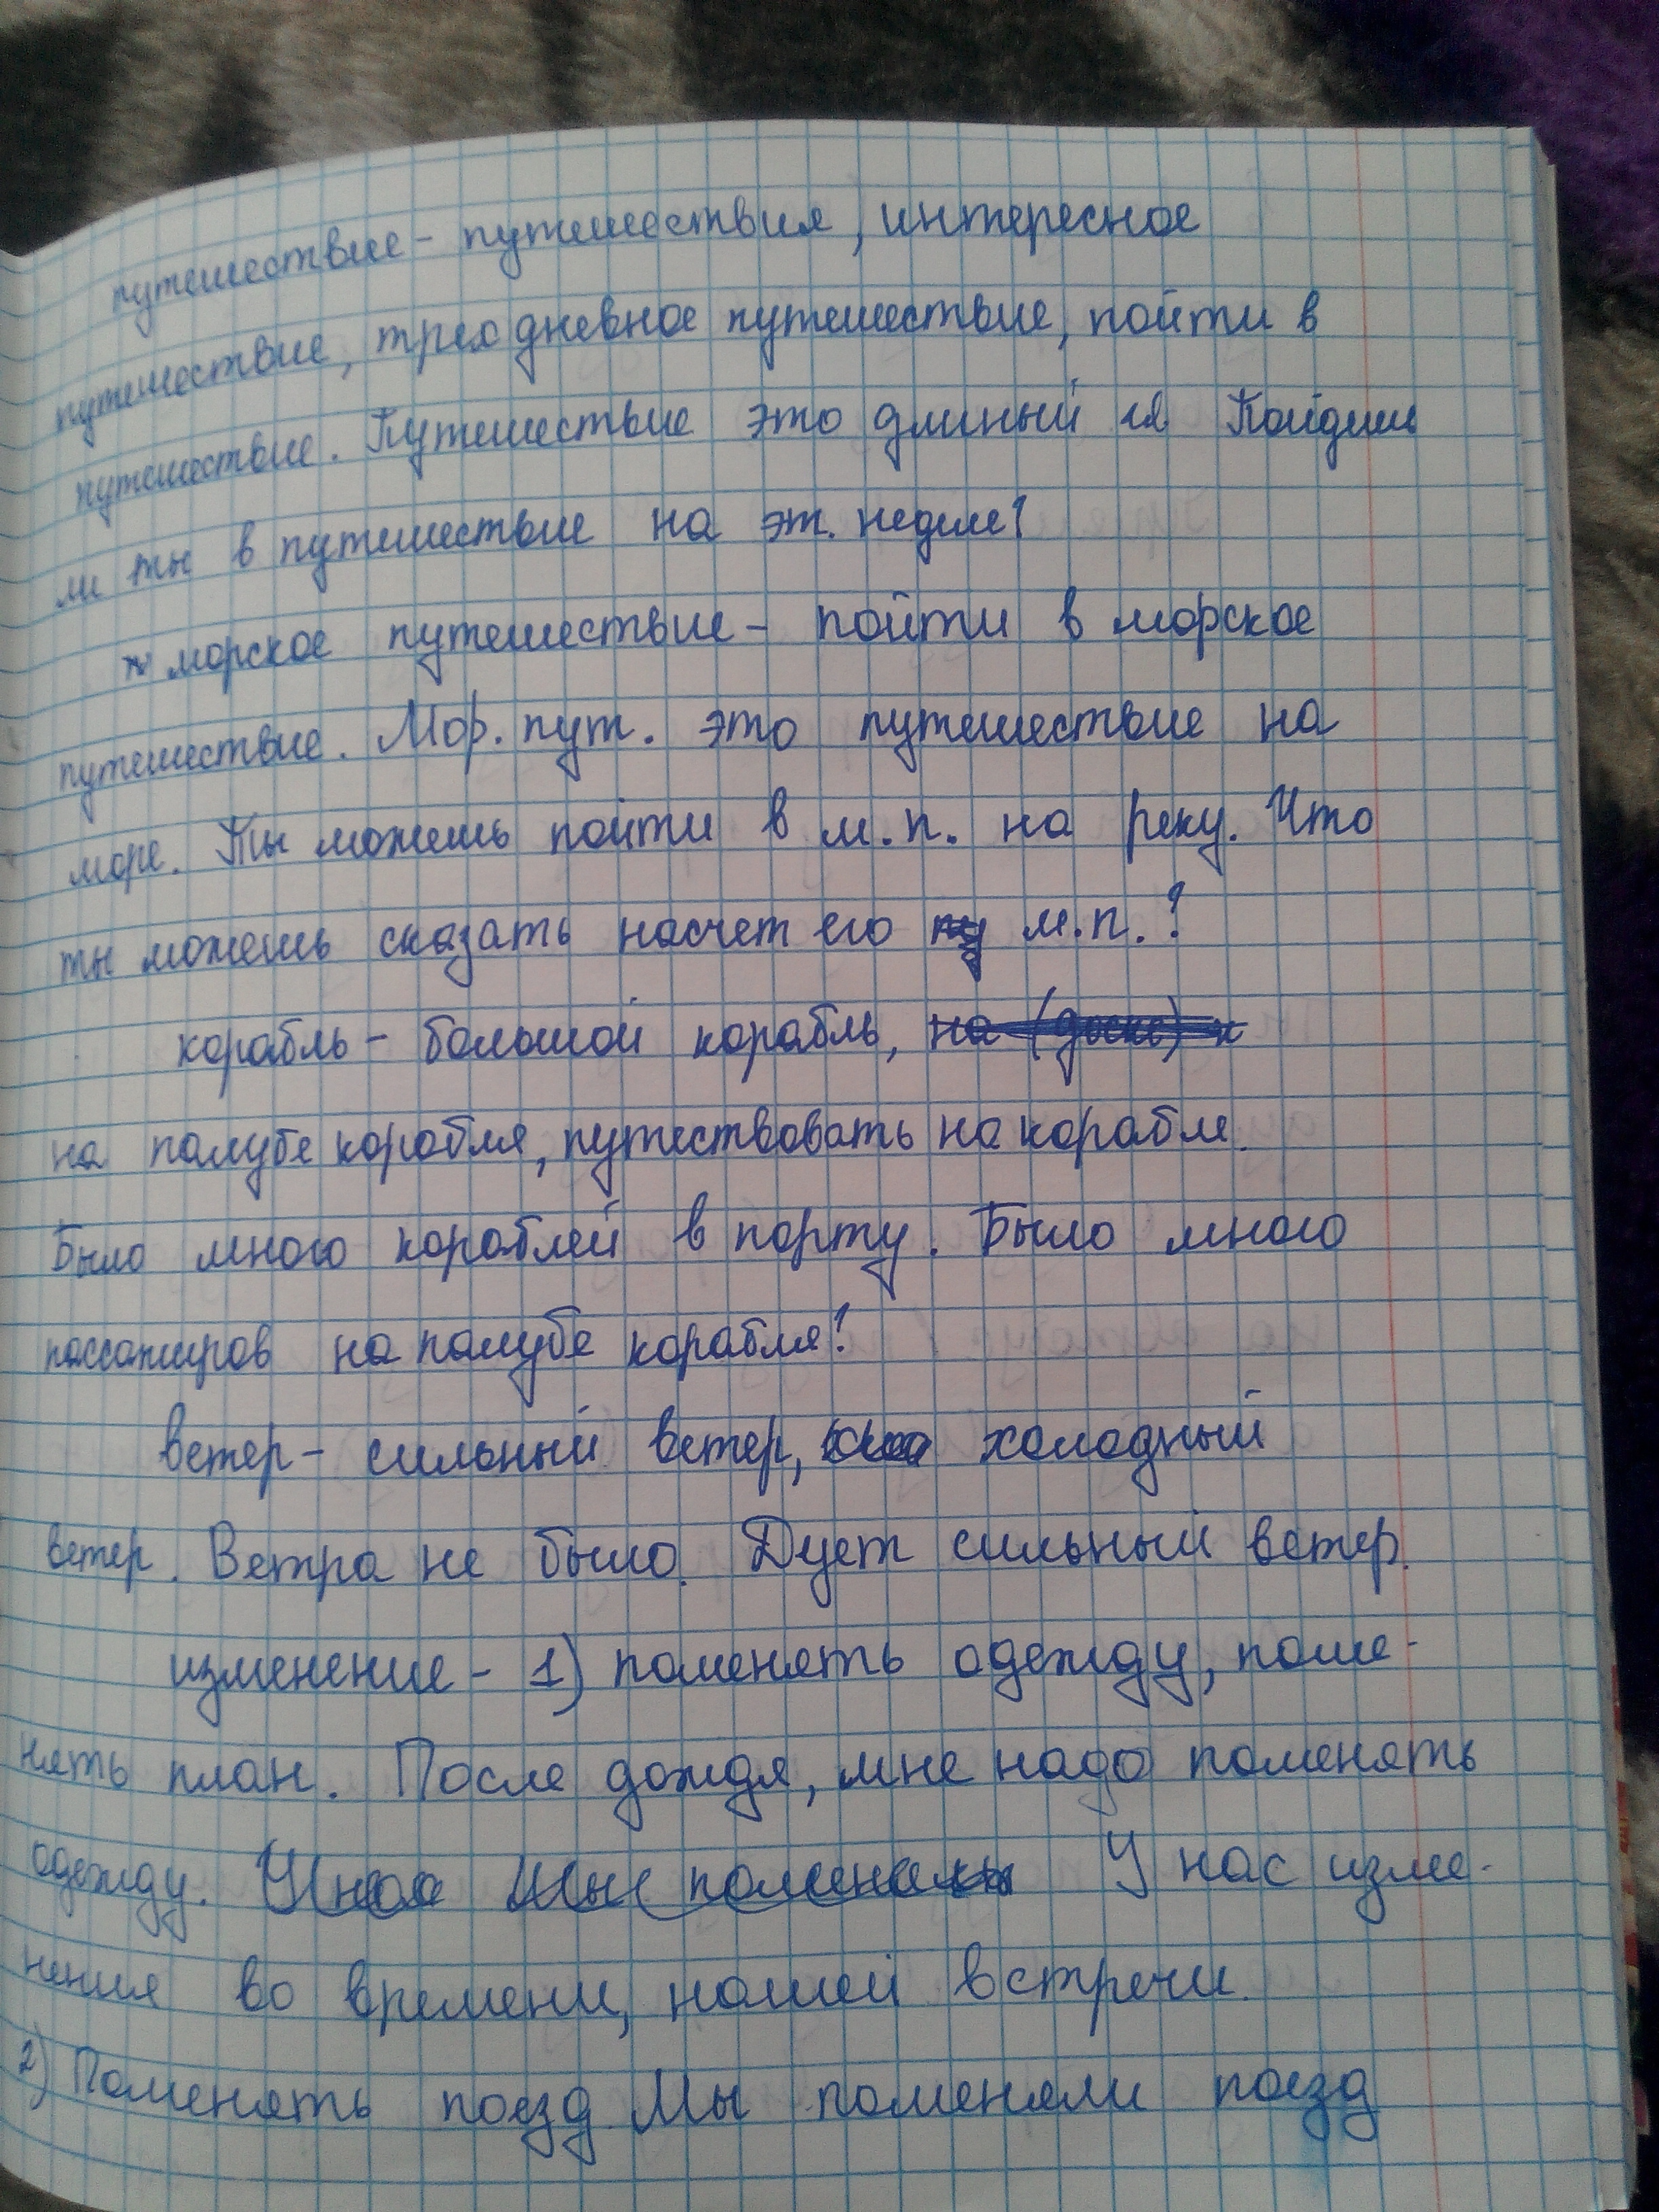 путешествие - путешествия, интересное
путешествие, трехдневное путешествие, пойти в
путешествие. Путешествие это длиный Пойдешь
ли ты в путешествие на эт. неделе?
морское путешествие - пойти в морское
путешествие. Мор. пут. это путешествие на
море. Ты можешь пойти в м.п. на реку. Что
ты можешь сказать насчет его м.п.?
корабль - большой корабль,
на палубе корабля, путествовать на корабле.
Было много кораблей в порту. Было много
пассажиров на палубе корабля!
ветер - сильный ветер, холодный
ветер. Ветра не было. Дует сильный ветер.
изменение - 1) поменять одежду, поме-
нять план. После дождя, мне надо поменять
одежду. У нас изме-
нения во времени, нашей встречи.
2) Поменять поезд. Мы поменяли поезд